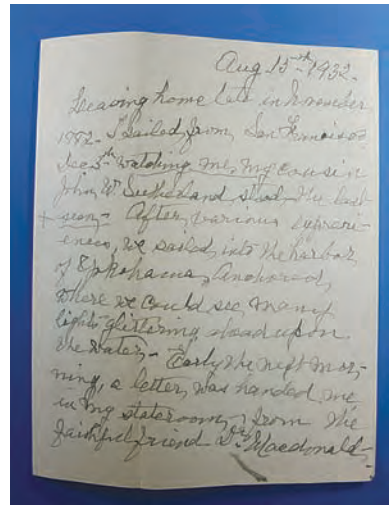 Aug 15-th 1932-
Leaving home late in November
1882- I sailed from, San Francisco
Dec 5-th watching me, my cousin
John W Sutherland stood, the last
seen- After, various experi-
ences, we sailed, into the harbor
of Yokohama, Anchored,
where we could see many
lights- glittering, abroad upon
the water,- Early the next mor-
ning, a letter, was handed me
in my stateroom,- from the
faithful friend Dr. Macdonald,-